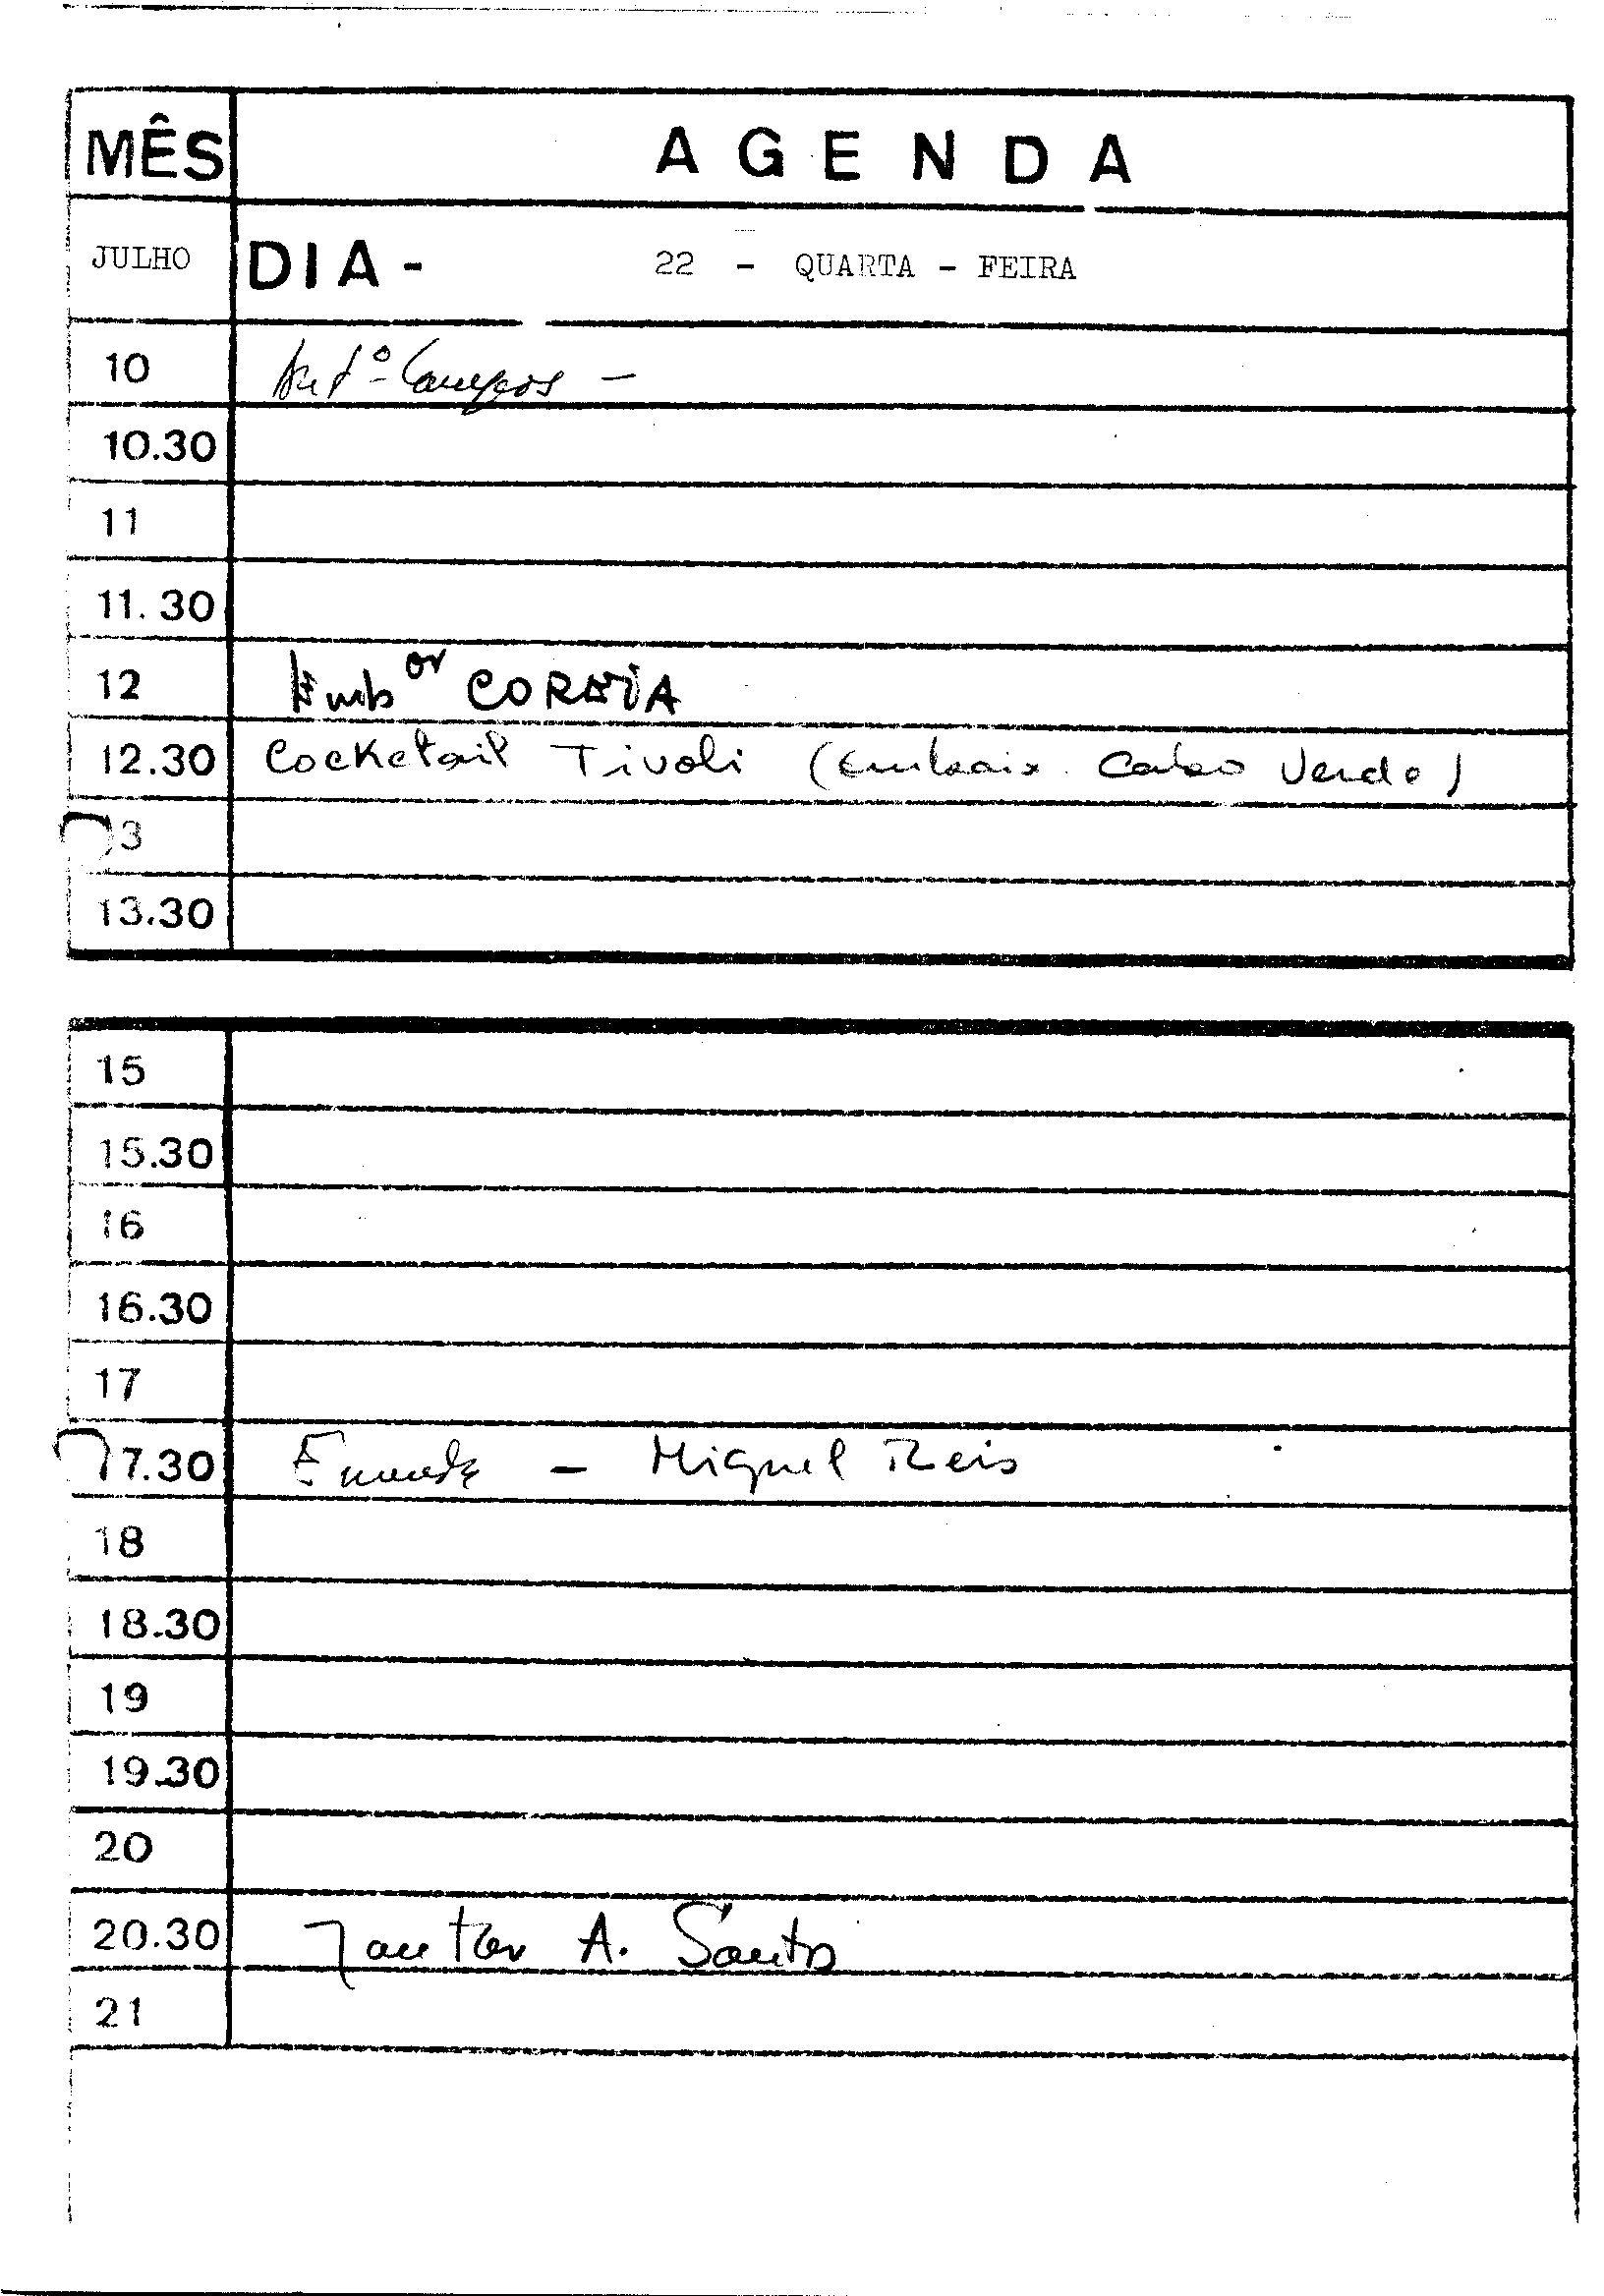 MÊS AGENDA
JULHO DIA - 22 - QUARTA - FEIRA
10 Antº Campos -
10.30
11
11.30
12 Emb or COREIA
12.30 Cocketail Tivoli (Embaix. Cabo Verde)
13
13.30
15
15.30
16
16.30
17
17.30 - Miguel Reis
18
18.30
19
19.30
20
20.30 Jantar A. Santos
21